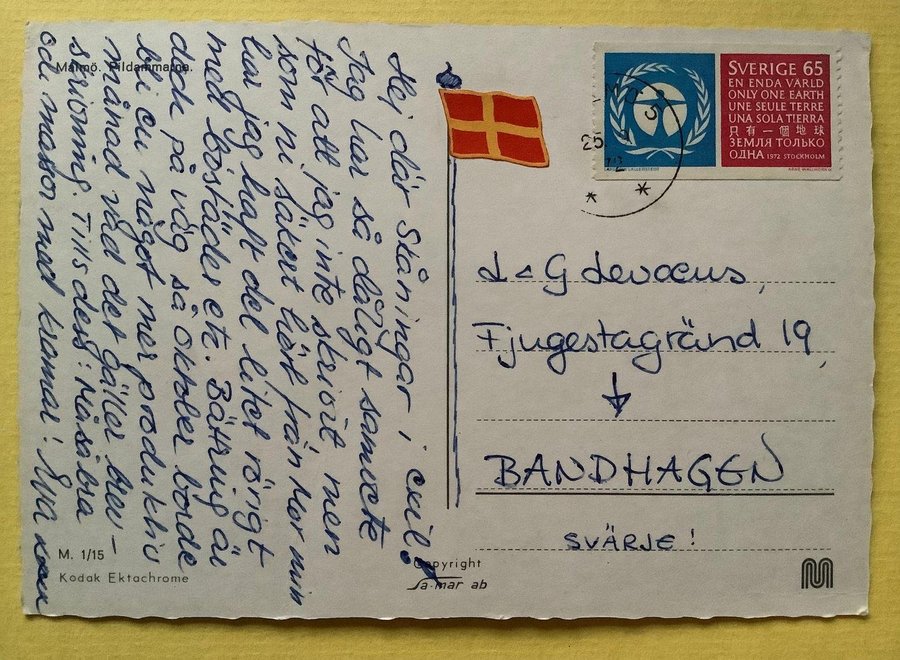 Malmö. Pildammarna.
Hej där Skåningar i exil!
Jag har så dåligt samvete
för att jag inte skrivit men
som ni säkert hört från Mor min
har jag haft det litet rörigt
med bostäder etc. Bättring är
dock på väg så oktober borde
bli en något mer produktiv
månad vad det gäller brev-
skrivning. Tills dess: Må så bra
och massor med kramar!
M. 1/15
Kodak Ektachrome
Copyright
Sa-mar ab
SVERIGE 65
EN ENDA VÄRLD
ONLY ONE EARTH
UNE SEULE TERRE
UNA SOLA TIERRA
只有一個地球
ЗЕМЛЯ ТОЛЬКО
ОДНА 1972 STOCKHOLM
25
L & G
Fjugestagränd 19,
BANDHAGEN
SVÄRJE!